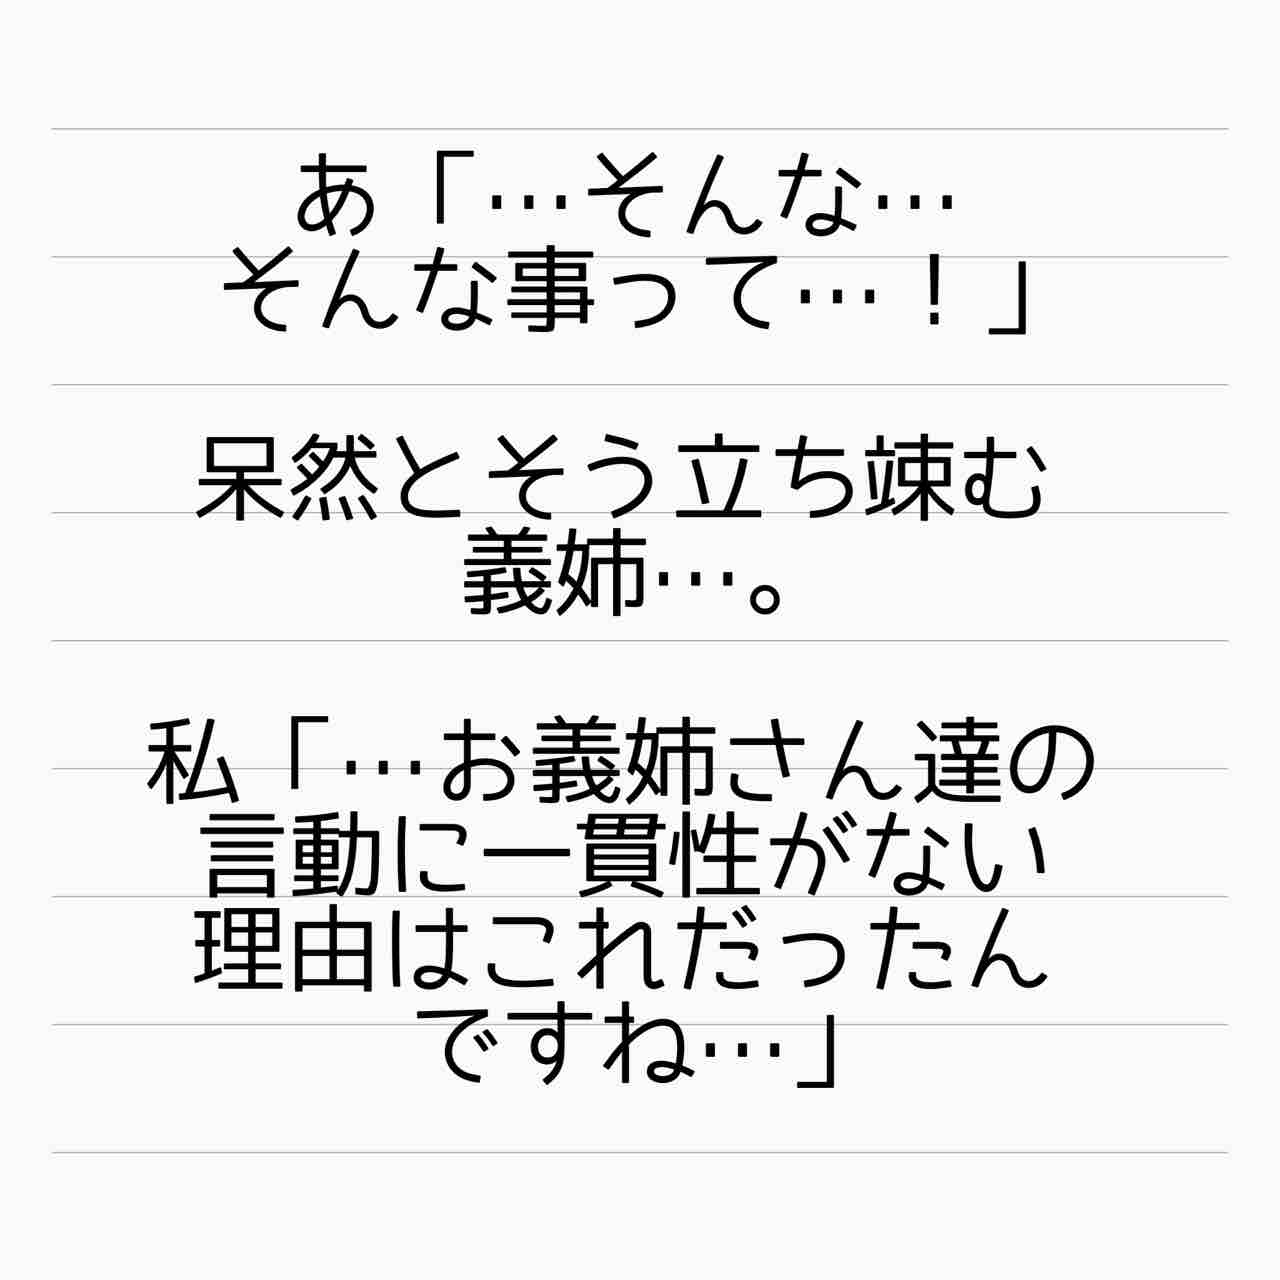 あ「…そんな…
そんな事って…！」
呆然とそう立ち竦む
義姉…。
私「…お義姉さん達の
言動に一貫性がない
理由はこれだったん
ですね…」